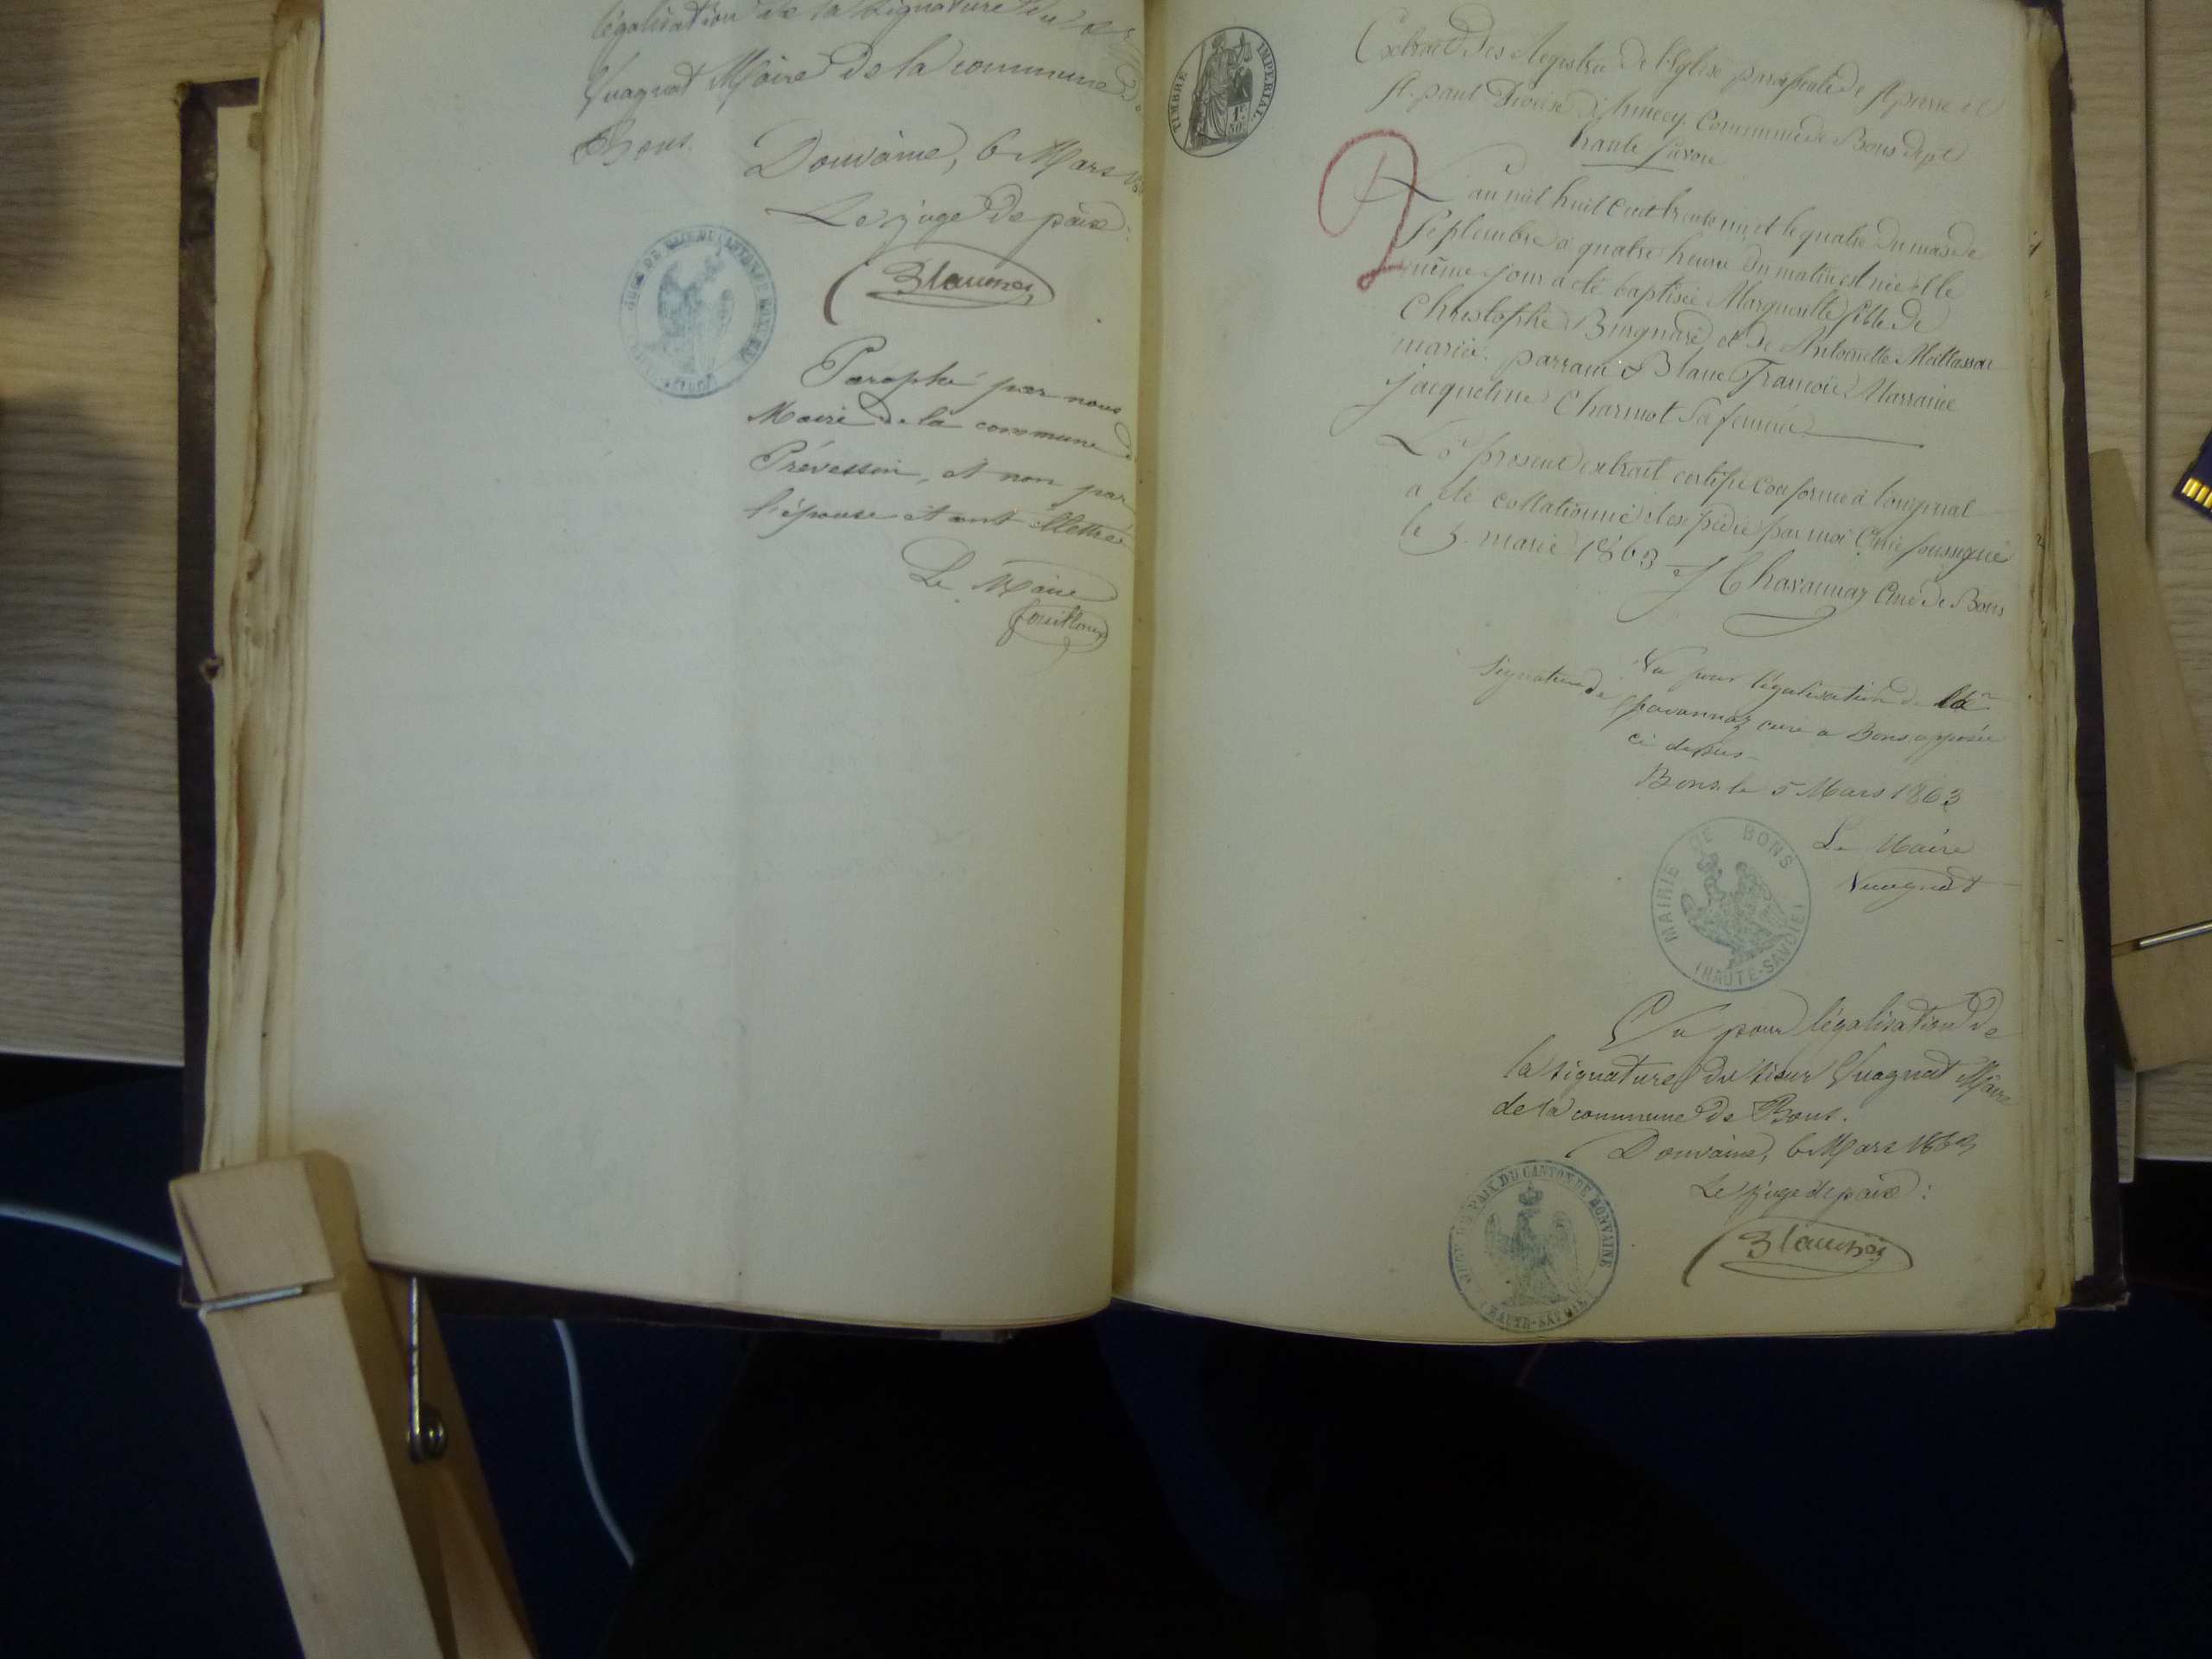 légalisation de la signature du sr
Vuagnat Maire de la commune de
Bons.
Douvaine, 6 Mars
Le juge de paix:
JUGE DE PAIX DU CANTON DE DOUVAINE
Paraphé par nous
Maire de la commune de
Prévessin, et non par
l'épouse étant illettrée
Le Maire
TIMBRE IMPERIAL
1F 50
Extrait des Registres de l'Eglise paroissiale de St pierre et
St paul Diocèse d'Annecy Commune de Bons dept
haute Savoie
L'an mil huit Cent trente neuf et le quatre du mois de
Septembre à quatre heures du matin est née et le
même jour a été baptisée Marguerite fille de
Christophe Burgniard et de Antoinette
mariés. parrain Blanc François Marraine
jacqueline Charmot Sa femme
Le présent extrait certifié conforme à l'original
a été collationné et expédié par moi Curé soussigné
le 5 mars 1863 Chavannaz Curé de Bons
Vu pour légalisation de la
signature de Chavannaz curé a Bons apposée
ci dessus
Bons le 5 Mars 1863
Le Maire
Vuagnat
MAIRIE DE BONS
(HAUTE-SAVOIE)
Vu pour légalisation de
la signature du sieur Vuagnat Maire
de la commune de Bons.
Douvaine, 6 Mars 1863
Le juge de paix:
JUGE DE PAIX DU CANTON DE DOUVAINE
(HAUTE-SAVOIE)